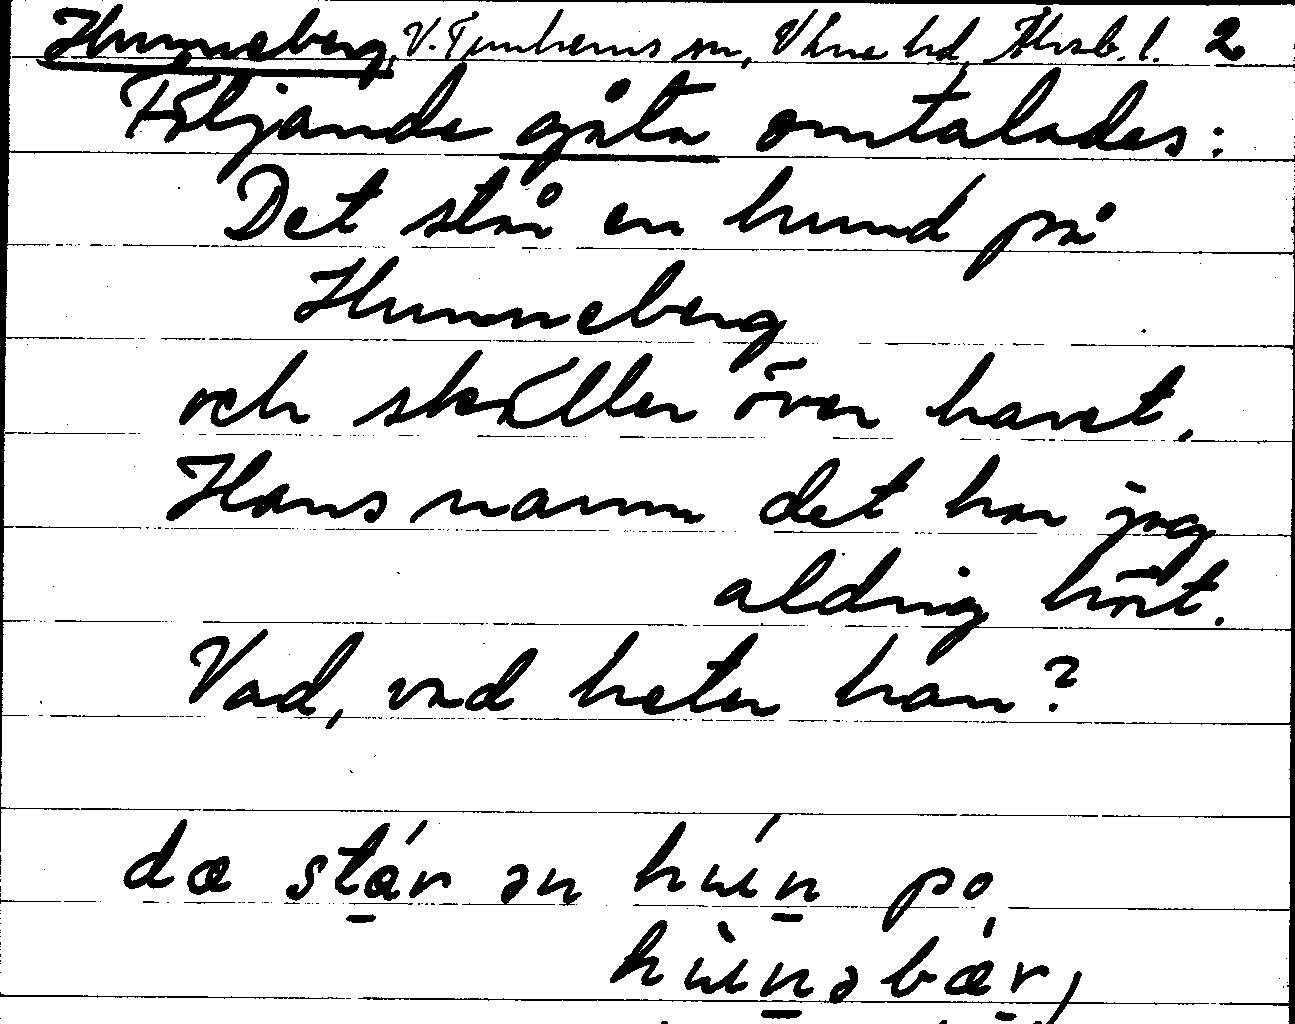 Hunneberg, V. Tunhems sn, Väne hd, Älvsb. l. 2
Följande gåta omtalades:
Det står en hund på
Hunneberg
och skäller över havet.
Hans namn det har jag
aldrig hört.
Vad, vad heter han?
dæ stár ən hún po
hùnəbær,